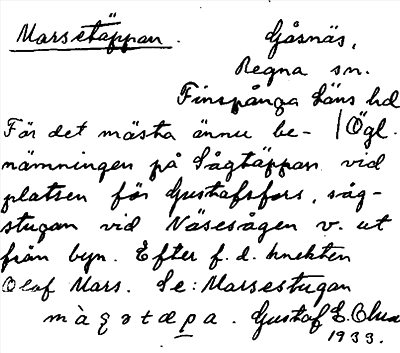 Marsetäppan. Gåsnäs,
Regna sn.
Finspånga läns hd
För det mästa ännu be- | Ögl.
nämningen på Sågtäppan vid
platsen för Gustafsfors, såg-
stugan vid Näsesågen v. ut
från byn. Efter f. d. knekten
Olof Mars. Se: Marsestugan
Gustaf E.
1933.